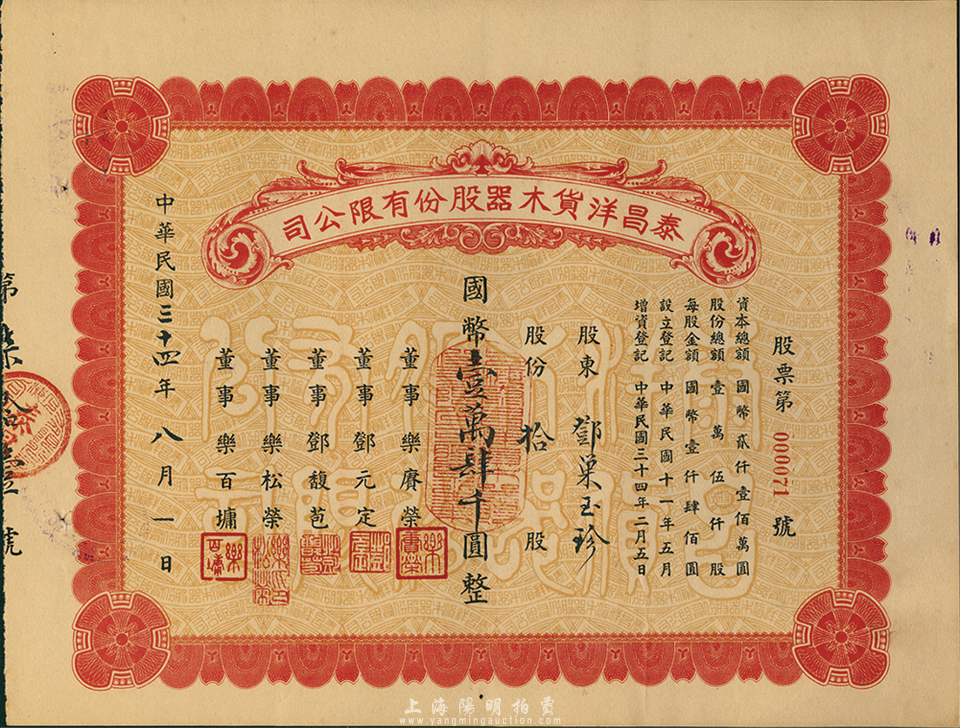 泰昌洋貨木器股份有限公司
股票第 000071 號
資本總額 國幣貳仟壹佰萬圓
股份總額 壹萬伍仟股
每股金額 國幣壹仟肆佰圓
設立登記 中華民國十一年五月
增資登記 中華民國三十四年二月五日
股東 鄧巢玉珍
股份 拾 股
國幣壹萬肆千圓整
董事 樂賡榮
董事 鄧元定
董事 鄧馥苞
董事 樂松榮
董事 樂百墉
中華民國三十四年八月一日
第柒拾壹號
上海陽明拍賣
www.yangmingauction.com